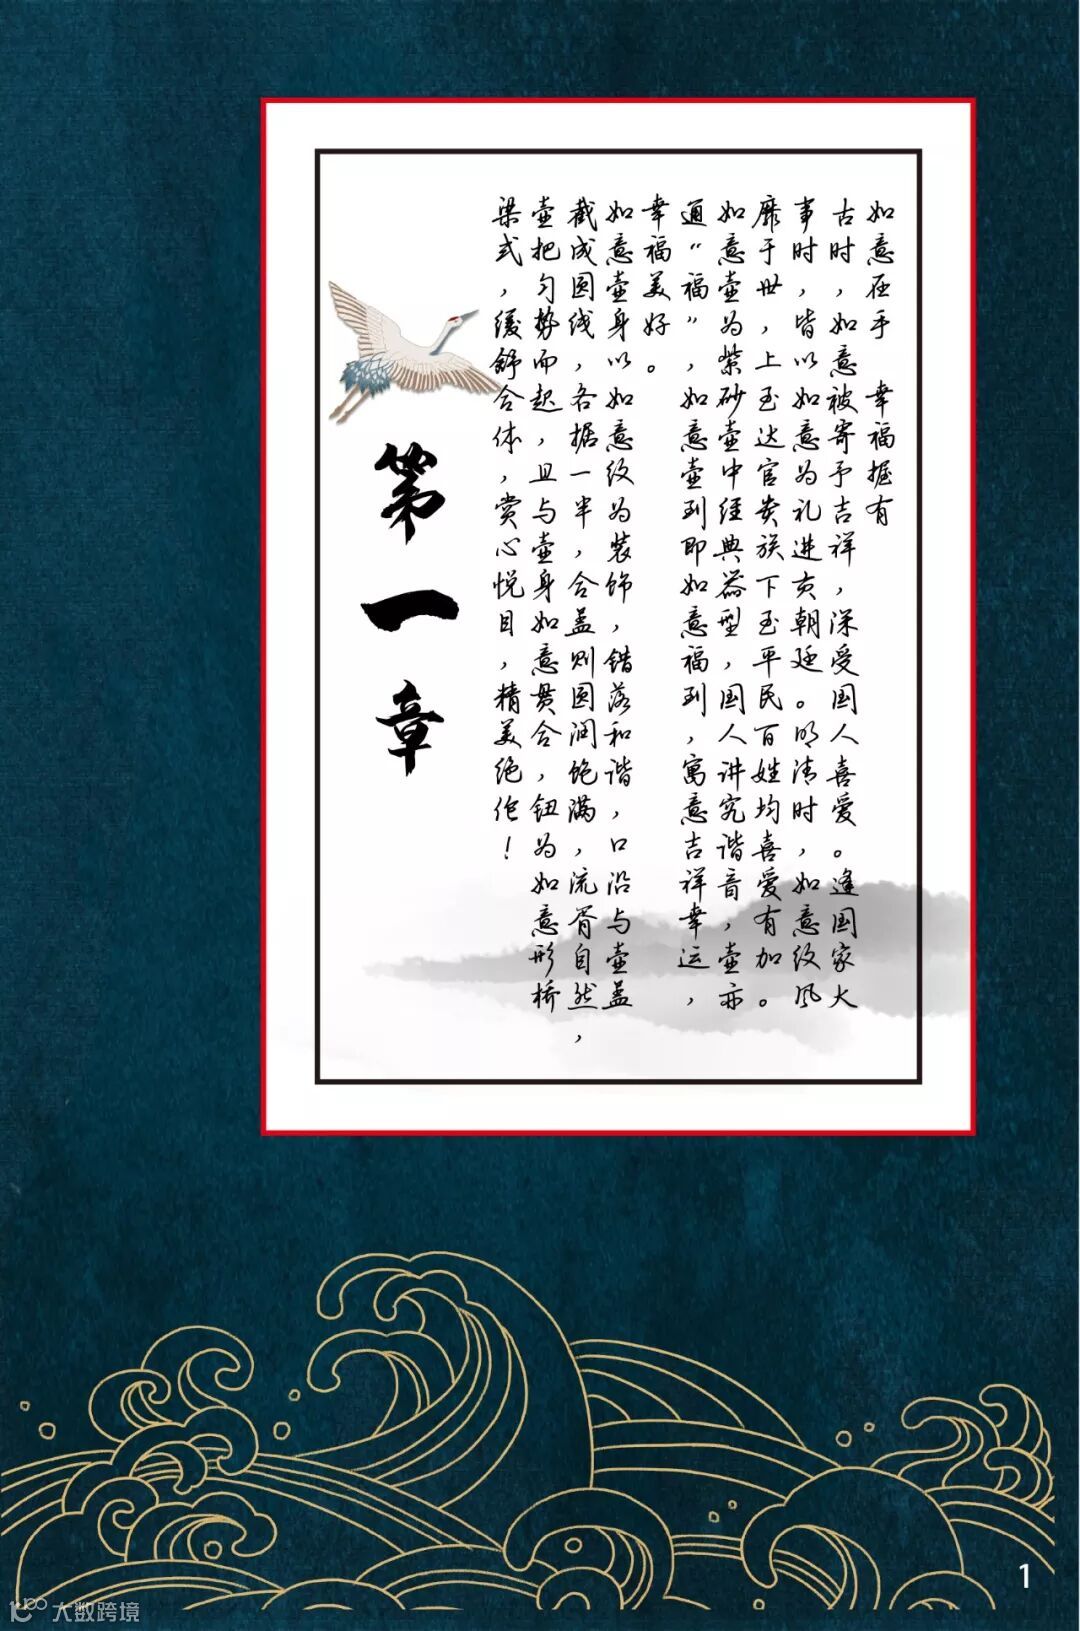 如意在手 幸福握有
古时，如意被寄予吉祥，深受国人喜爱。逢国家大
事时，皆以如意为礼进贡朝廷。明清时，如意纹风
靡于世，上至达官贵族下至平民百姓均喜爱有加。
如意壶为紫砂壶中经典器型，国人讲究谐音，壶亦
通“福”，如意壶到即如意福到，寓意吉祥幸运，
幸福美好。
如意壶身以如意纹为装饰，错落和谐，口沿与壶盖
截成圆线，各据一半，合盖则圆润饱满，流胥自然，
壶把匀势而起，且与壶身如意贯合，钮为如意形桥
梁式，缓舒合体，赏心悦目，精美绝伦！
第一章
1
大数跨境